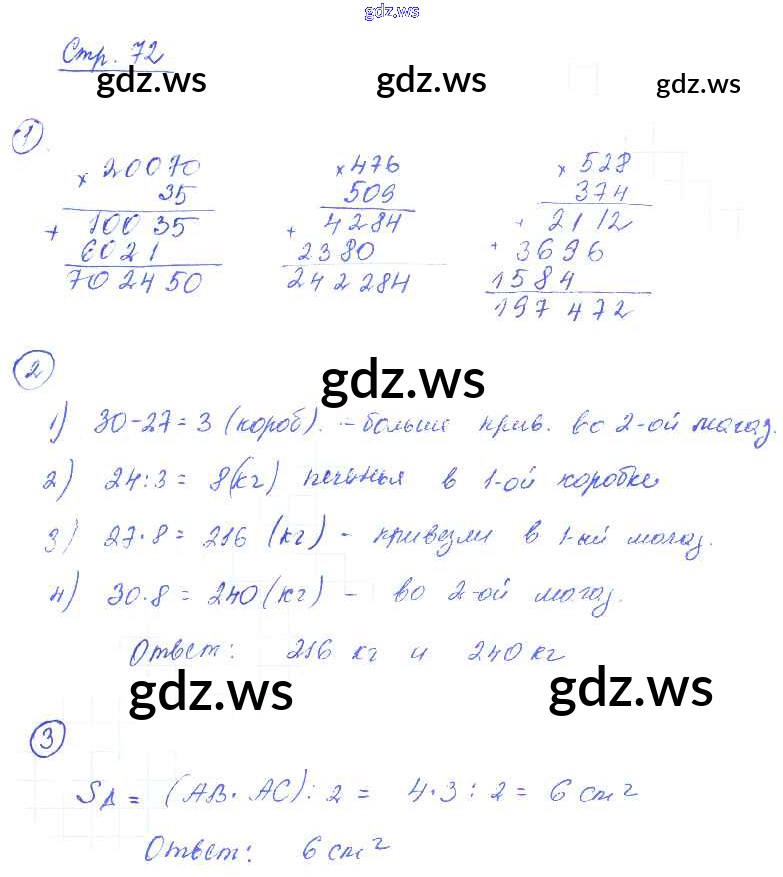 gdz.ws
Стр. 72
gdz.ws gdz.ws gdz.ws
1
× 20070 × 476 × 528
35 509 374
+ 10035 + 4284 + 2112
6021 2380 + 3696
702450 242284 1584
197472
2
gdz.ws
1) 30-27=3 (короб). – больше прив. во 2-ой магаз.
2) 24:3 = 8(кг) печенья в 1-ой коробке
3) 27·8 = 216 (кг) – привезли в 1-ый магаз.
4) 30·8 = 240(кг) – во 2-ой магаз.
Ответ: 216 кг и 240 кг
gdz.ws gdz.ws
3
S∆ = (AB·AC):2 = 4·3:2 = 6 см²
Ответ: 6 см²